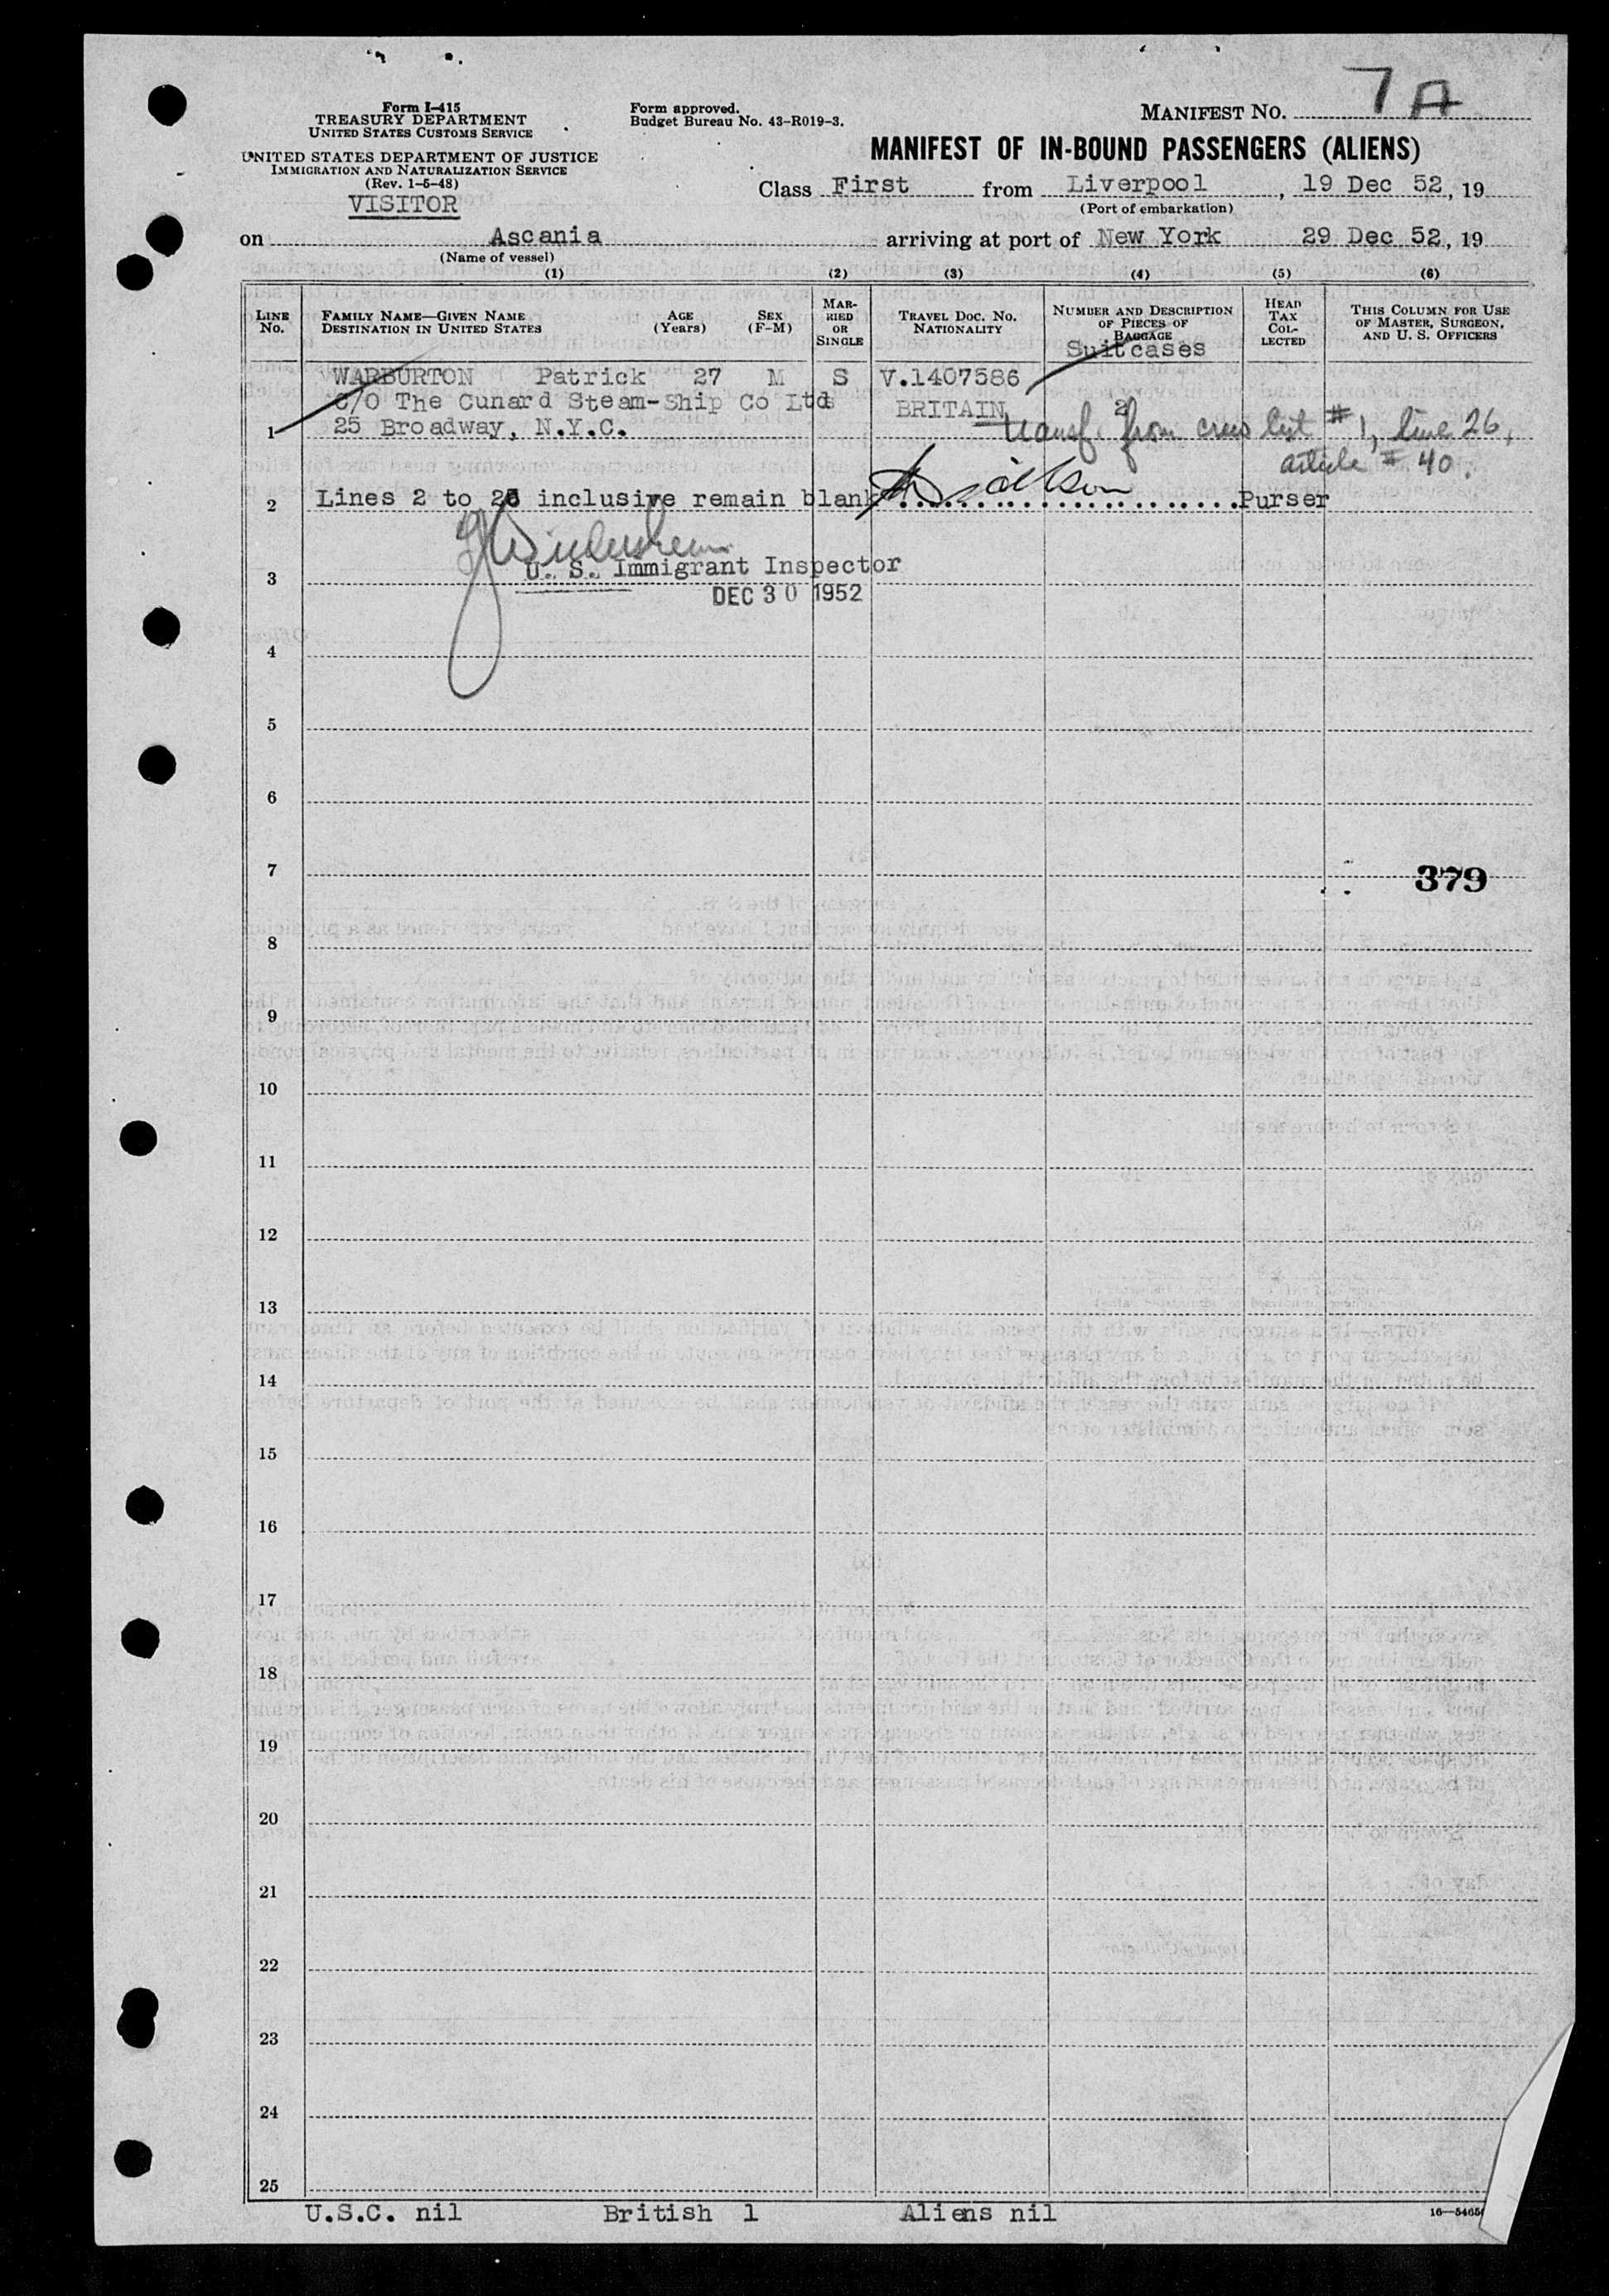 Form I-415
TREASURY DEPARTMENT
UNITED STATES CUSTOMS SERVICE
UNITED STATES DEPARTMENT OF JUSTICE
IMMIGRATION AND NATURALIZATION SERVICE
(Rev. 1-5-48)
VISITOR
Form approved.
Budget Bureau No. 43-R019-3.
MANIFEST NO. 7A
MANIFEST OF IN-BOUND PASSENGERS (ALIENS)
Class First from Liverpool, 19 Dec 52, 19
(Port of embarkation)
on Ascania arriving at port of New York 29 Dec 52, 19
(Name of vessel)
(1) (2) (3) (4) (5) (6)
LINE No.
FAMILY NAME—GIVEN NAME
DESTINATION IN UNITED STATES
AGE (Years)
SEX (F-M)
MARRIED OR SINGLE
TRAVEL DOC. NO.
NATIONALITY
NUMBER AND DESCRIPTION OF PIECES OF BAGGAGE
Suitcases
HEAD TAX COLLECTED
THIS COLUMN FOR USE OF MASTER, SURGEON, AND U. S. OFFICERS
WARBURTON Patrick 27 M S V.1407586
C/O The Cunard Steam-Ship Co Ltd BRITAIN 2
1 25 Broadway, N.Y.C. transf. from crew list #1, line 26,
article # 40.
2 Lines 2 to 25 inclusive remain blank Purser
U. S. Immigrant Inspector
3
DEC 30 1952
4
5
6
7 379
8
9
10
11
12
13
14
15
16
17
18
19
20
21
22
23
24
25
U.S.C. nil British 1 Aliens nil